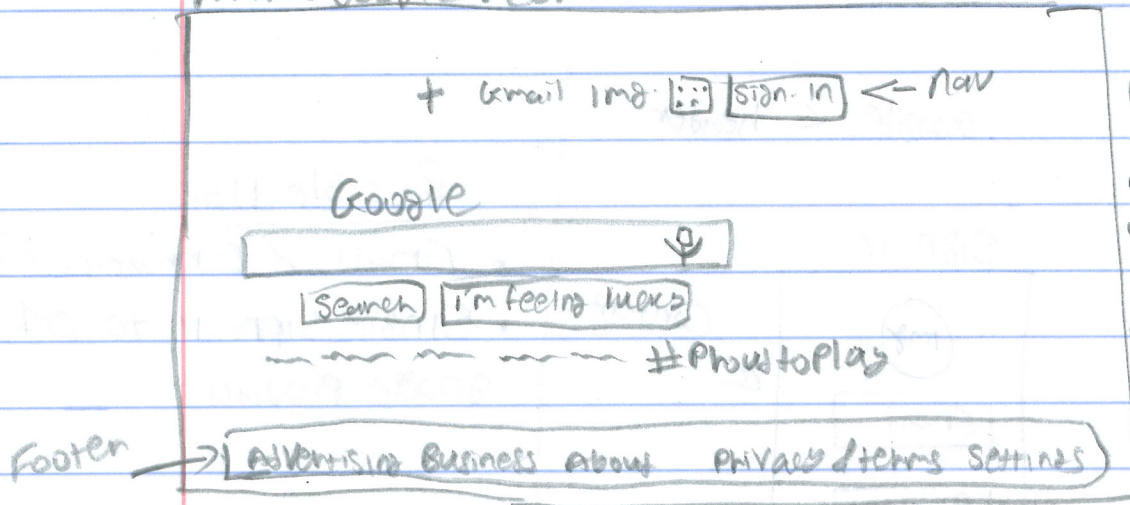 + Gmail img sign in <- nav
Google
Search I'm feeling lucky
#ProudtoPlay
Footer -> Advertising Business About Privacy/terms Settings